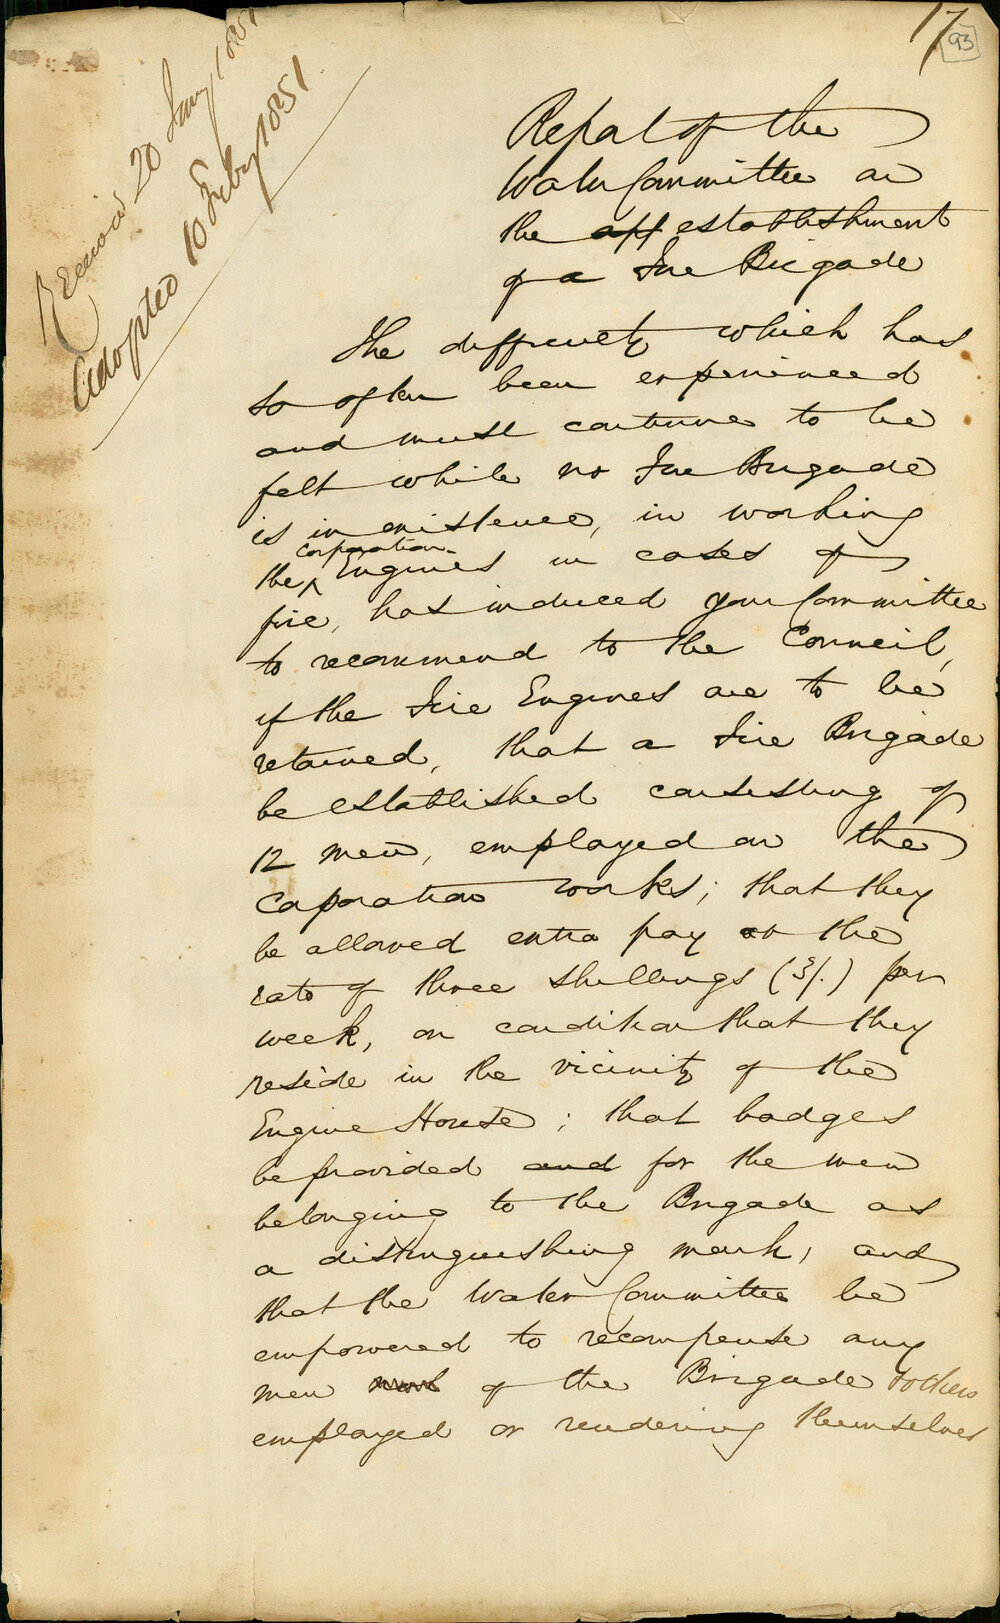 17
93
Received 20 Jany 1851
Adopted 10 Feby 1851
Report of the
Water Committee on
the app establishment
of a Fire Brigade
The difficulty which has
so often been experienced
and must continue to be
felt while no Fire Brigade
is in existence, in working
the ^ Corporation Engines in cases of
fire, has induced your Committee
to recommend to the Council,
if the Fire Engines are to be
retained, that a Fire Brigade
be established consisting of
12 men, employed on the
Corporation works; that they
be allowed extra pay at the
rate of three shillings (3/.) per
week, on condition that they
reside in the vicinity of the
Engine House; that badges
be provided and for the men
belonging to the Brigade as
a distinguishing mark, and
that the Water Committee be
empowered to recompense any
men not of the Brigade
employed or rendering themselves